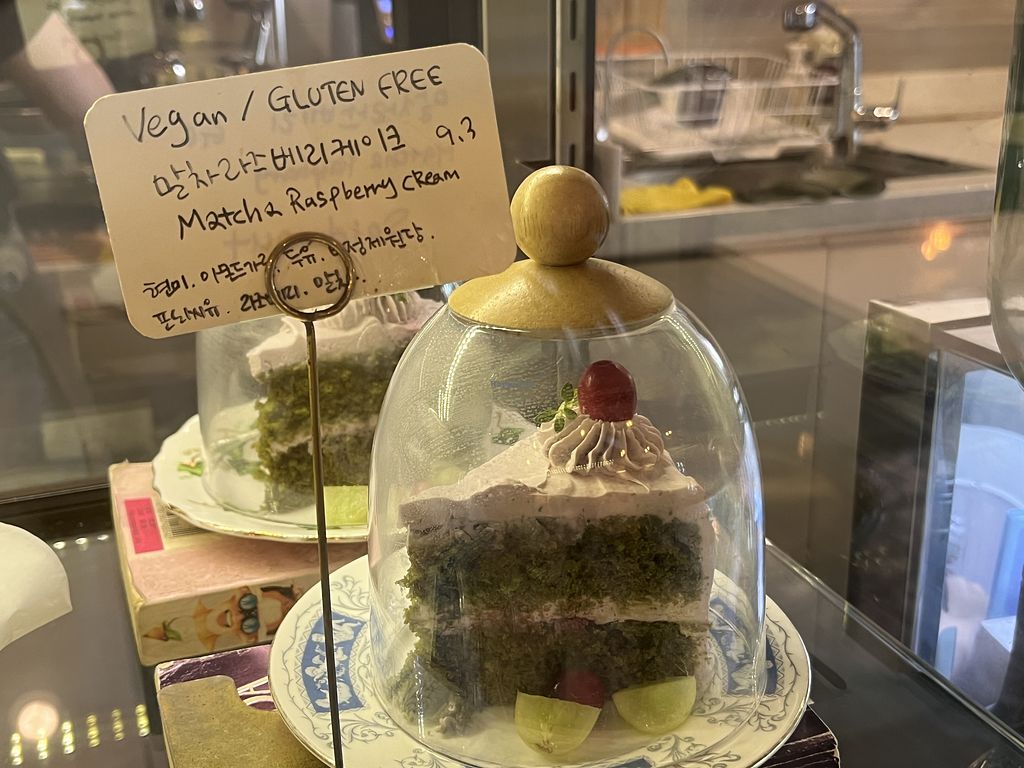 Vegan / GLUTEN FREE
말차라즈베리케이크 9.3
Matcha Raspberry cream
현미. 아몬드가루. 두유. 정제원당.